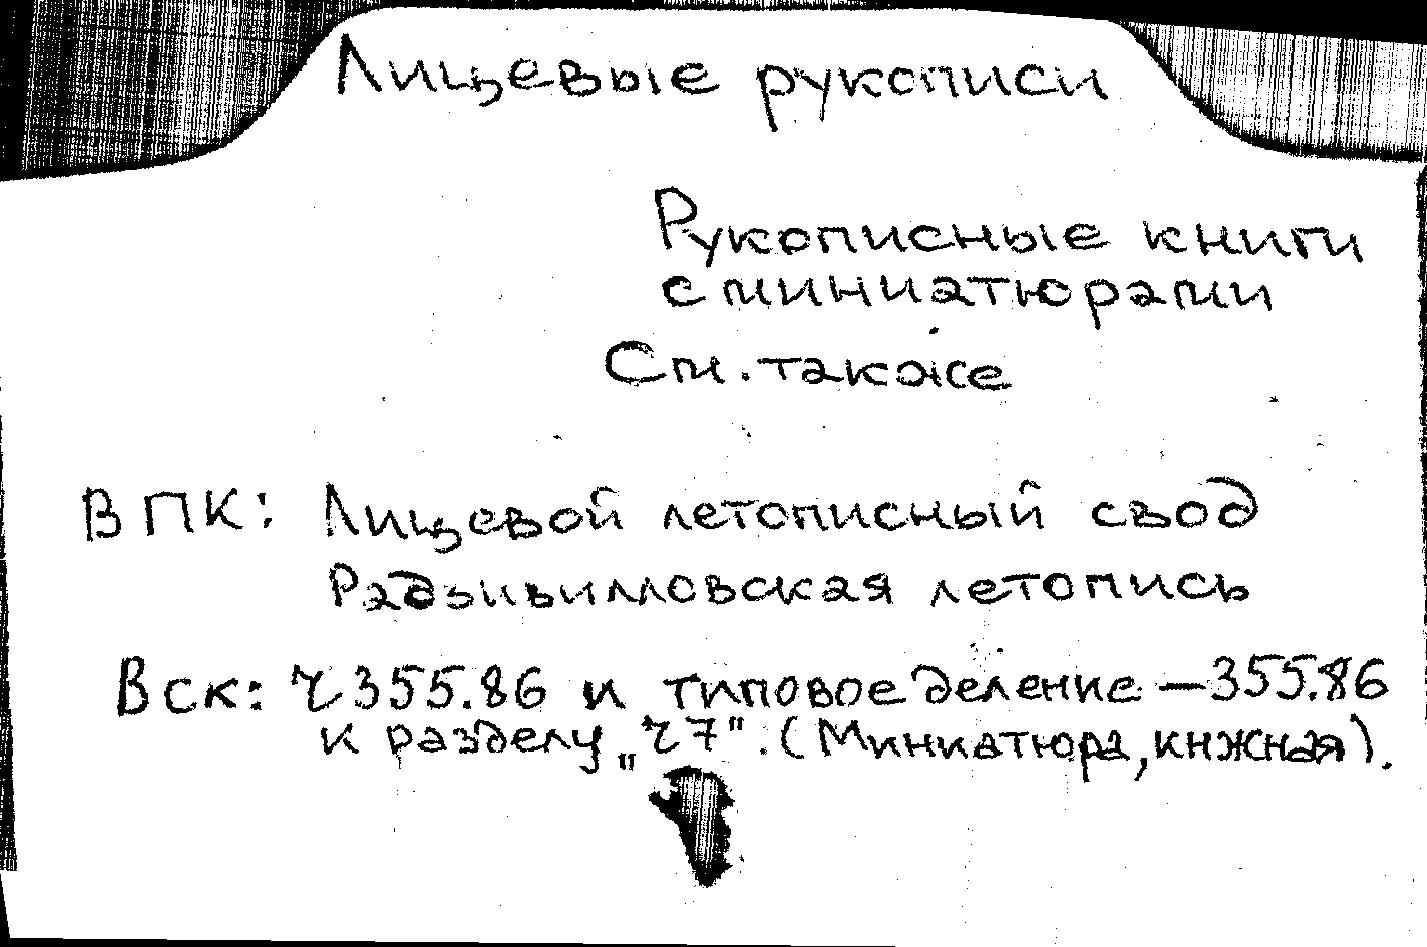 Лицевые рукописи
Рукописные книги
с миниатюрами
См. также
В ПК: Лицевой летописный свод
Радзивилловская летопись
В ск: Ч355.86 и типовое деление —355.86
к разделу „Ч7". (Миниатюра, кнжная).